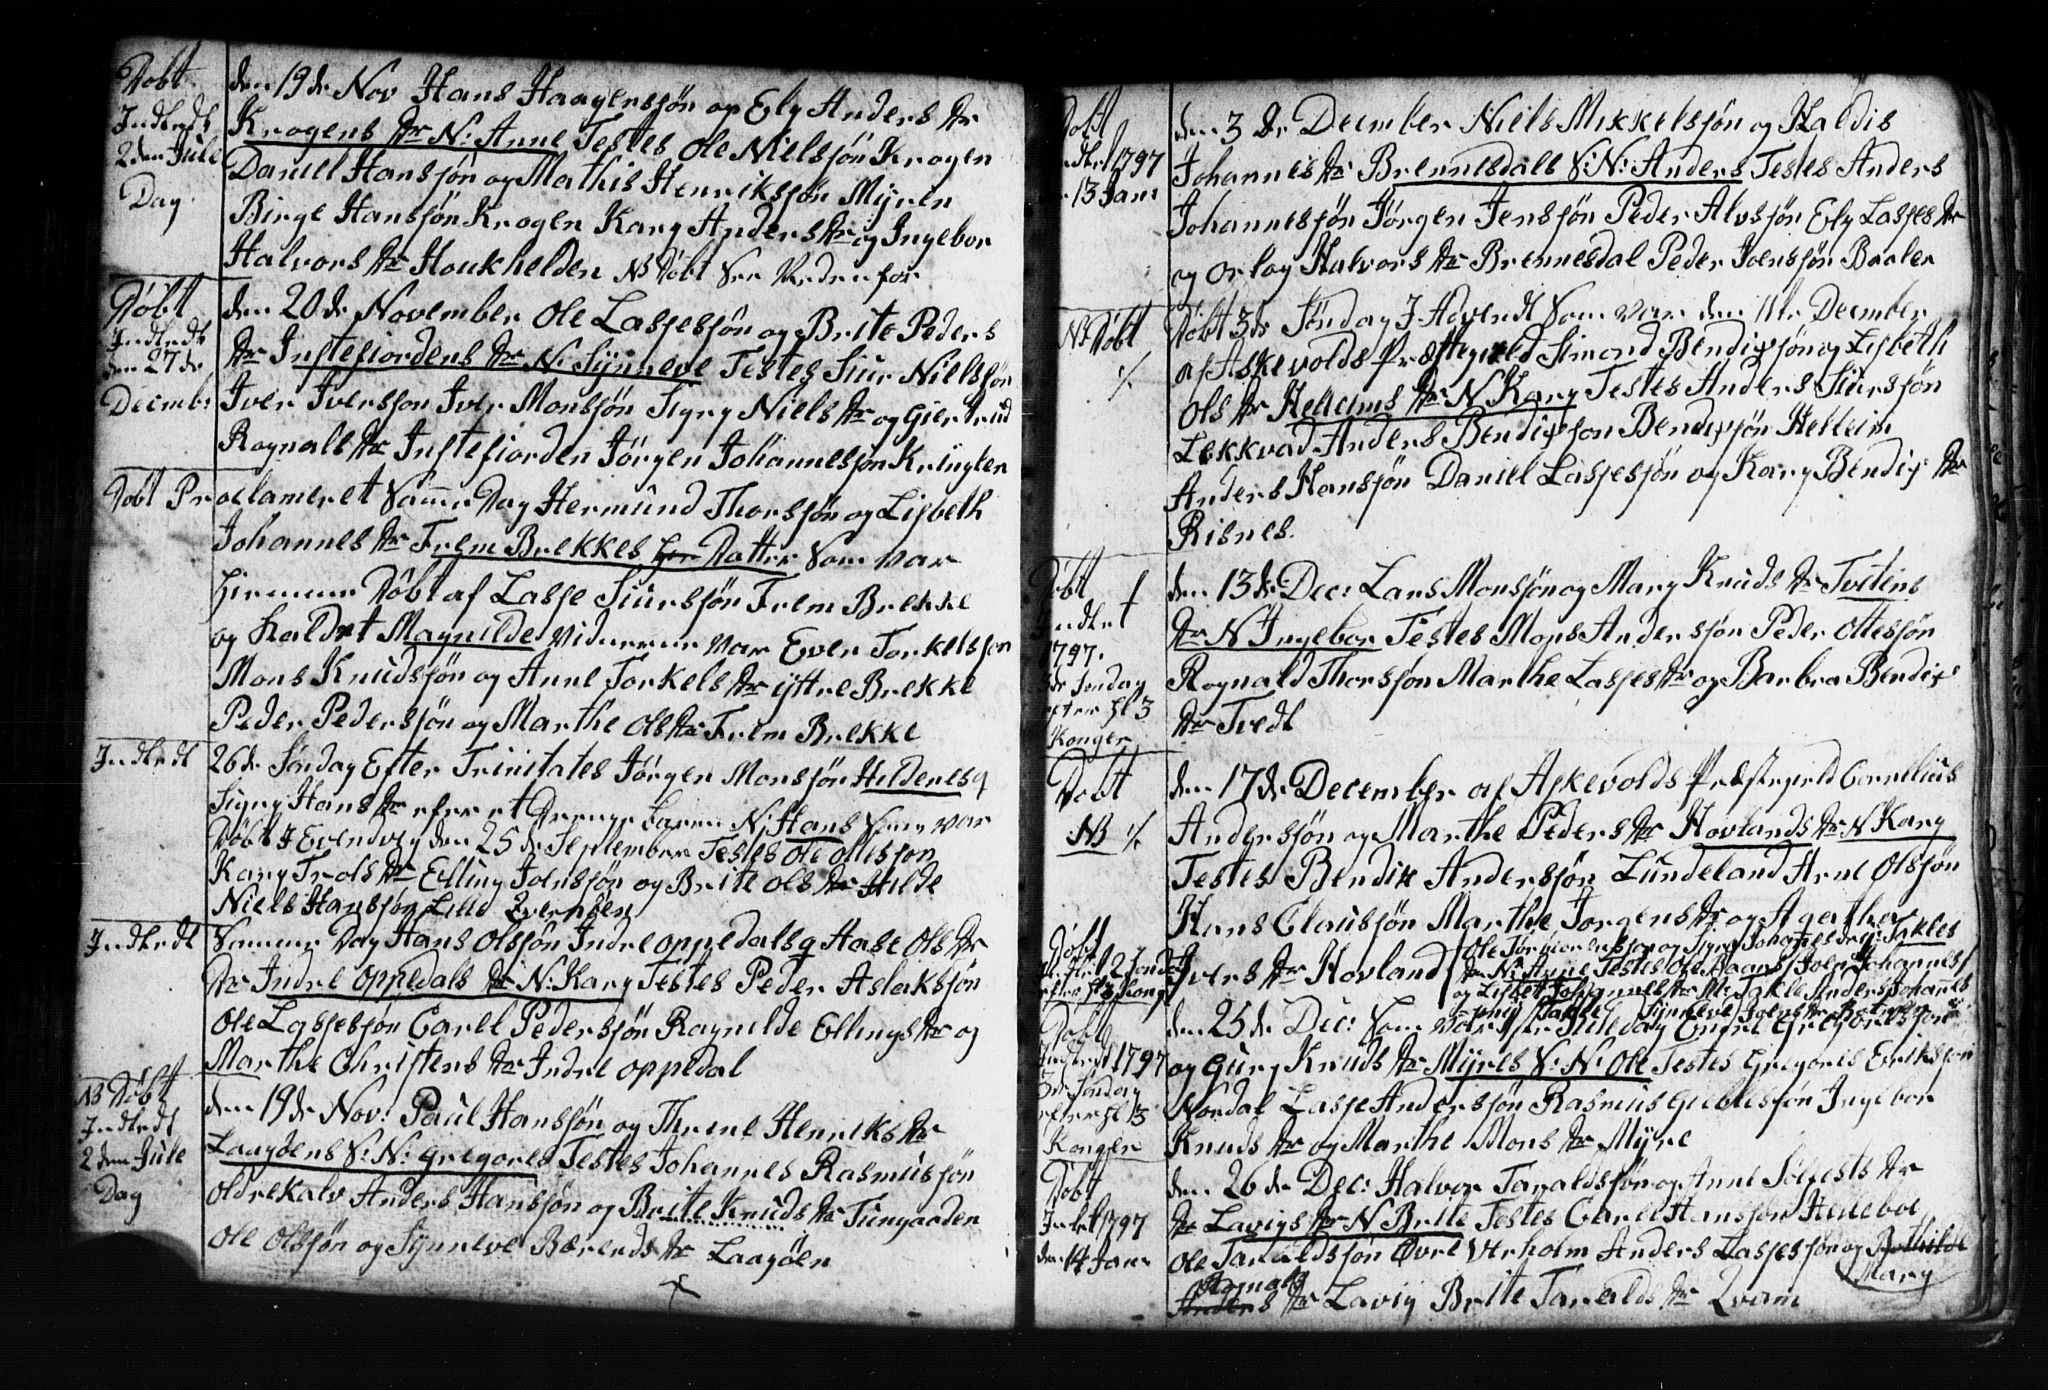 Døbt
Indledt
2den Jule
Dag
den 19de Nov Hans Haagensjøn og Ely Anders Dr
Krogens Dr N: Anne Testes Ole Nielsjøn Krogen
Daniel Hansjøn og Mathis Henriksjøn Myren
Birge Hansjøn Krogen Kary Anders Dr og Ingebor
Halvors Dr Houkhelden NB Døbt See Nedenfor
Døbt
Indledt
den 27de
Decembr
den 20de November Ole Lassesjøn og Brite Peders
Dr Instefiordens Dr N: Synneve Testes Siur Nielsjøn
Iver Iversjon Iver Monsjøn Sigry Niels Dr og Giertrud
Rognalds Dr Instefiorden Jørgen Johannesjon Kringlen
Døbt Proclameret Samme Dag Hermund Thorsjøn og Lisbeth
Johannes Dr Frem Brekkes Datter Som var
hiemme Døbt af Lasse Siursjøn Frem Brekke
og kaldet Magnilde Vidnerne var Ever Torkelsjon
Mons Knudsjøn og Anne Torkels Dr yttre Brekke
Peder Pedersjøn og Marthe Ols Dr Frem Brekke
Indledt
26de Søndag Efter Trinitates Jørgen Monsjøn Hildenes og
Sigry Hans Dr efter et Drenge barn N: Hans Som var
Døbt I Evendvig den 25de September Testes Ole Ottesjon
Kary Trols Dr Elling Joensjøn og Brite Ols Dr Hilde
Niels Hansjøn Lille Qvernøen
Indledt
Samme Dag Hans Olsjøn Indre oppedals og Aase Ols Dr
Dr Indre oppedals Dr N: Kary Testes Peder Aslaksjøn
Ole Lassesjøn Carel Pedersjøn Ragnilde Ellings Dr og
Marthe Christens Dr Indre oppedal
NB Døbt
Indledt
2den Jule
Dag
den 19de Nov: Paul Hansjøn og Thrine Henriks Dr
Laagøens S: N: Gregores Testes Johannes Rasmusjøn
Oldrekalv Anders Hansjøn og Brite Knuds Dr Tungoden
Ole Olsjøn og Synneve Bærends Dr Laagøen
Døbt
Indledt 1797
13 Jani
den 3de December Niels Mikkelsjøn og Haldis
Johannes Dr Brennesdals S: N: Anders Testes Anders
Johannesjøn Jørgen Jensjøn Peder Alvsjøn Ely Lasses Dr
og Orlog Halvors Dr Brennesdal Peder Joensjøn Baalen
NB Døbt
Døbt 3de Søndag I Advendt Som var den 11te December
af Askevolds Præstegield Simond Bendixsjøn og Lisbeth
Ols Dr Helleims Dr N Kary Testes Anders Siursjøn
Lekkvad Anders Bendixsjon Bendixsjøn Helleim
Anders Hansjøn Daniel Lassesjøn og Kary Bendix Dr
Risnes.
Døbt
Indled
1797.
Søndag
efter hl 3
Konger
den 13de Dec: Lars Monsjøn og Mary Knuds Dr Tveitens
Dr N Ingebor Testes Mons Andersjøn Peder Ottesjøn
Rognald Thorsjøn Marthe Lasses Dr og Barbra Bendix
Dr Tvedt
Døbt
NB
den 17de December af Askevolds Præstegield Cornelius
Andersjøn og Marthe Peders Dr Hovlands Dr N Kary
Testes Bendix Andersjøn Lundeland Arne Olsjøn
Hans Clausjøn Marthe Jorgens Dr og Agathe
Ivers Dr Hovland
Døbt
2 Sønda
efter hl 3 Kong
Ole Torbiørnsjon og Sigri Johannes Dr Takles
Dr N: Anne Testes Ole Joen Johannes
og Lisbet Johannes Dr Takle Anders Johannes
Takle Synneve Joens Dr
Døbt
Indledt 1797
3de Søndag
efter hl 3
Konger
den 25de Dec: Som var Jule dag Gregoriesjøn
og Gury Knuds Dr Myres S: N: Ole Testes Gregoris Eriksjon
Nordal Lasse Andersjøn Rasmus Giehlesjøn Ingebor
Knuds Dr og Marthe Mons Dr Myre
Døbt
1797
den 14 Jani
den 26de Dec: Halvor Taraldsjøn og Anne Solfests Dr
Dr Lavigs Dr N Brite Testes Carel Hansjøn Helleboe
Ole Taraldsjøn Øvre Verholm Anders Lassesjøn og Bothilde
Mary
Rognals
Anders Dr Lavig Brite Taralds Dr Qvam